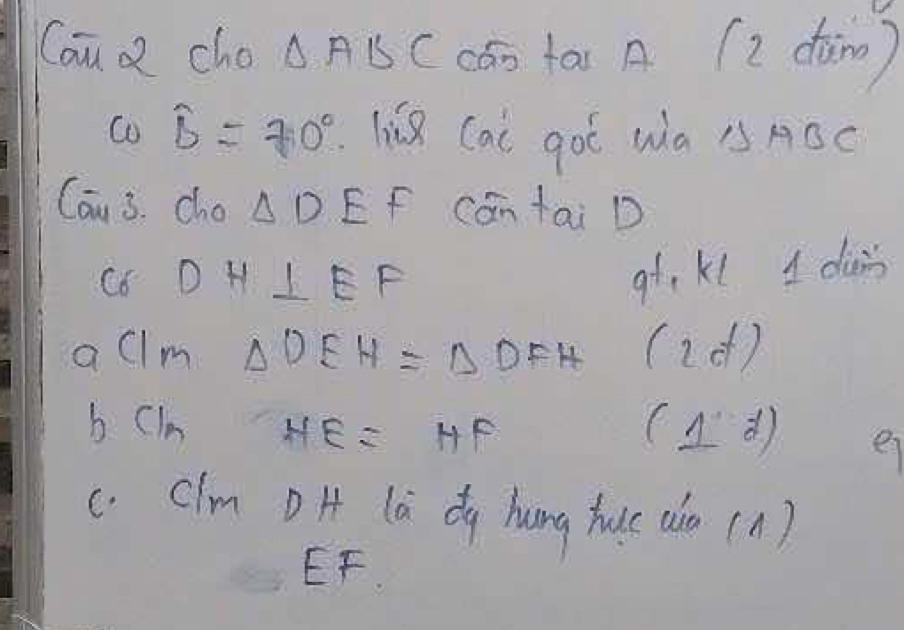 Câu 2 cho Δ ABC cân tại A (2 điểm)
có B̂ = 70°. tính các góc của Δ ABC
Câu 3. cho Δ DEF cân tại D
có DH ⊥ EF gt, kl 1 điểm
a C/m ΔDEH = ΔDFH (2đ)
b C/m HE = HF (1đ)
c. C/m DH là đg trung trực của (1)
EF.